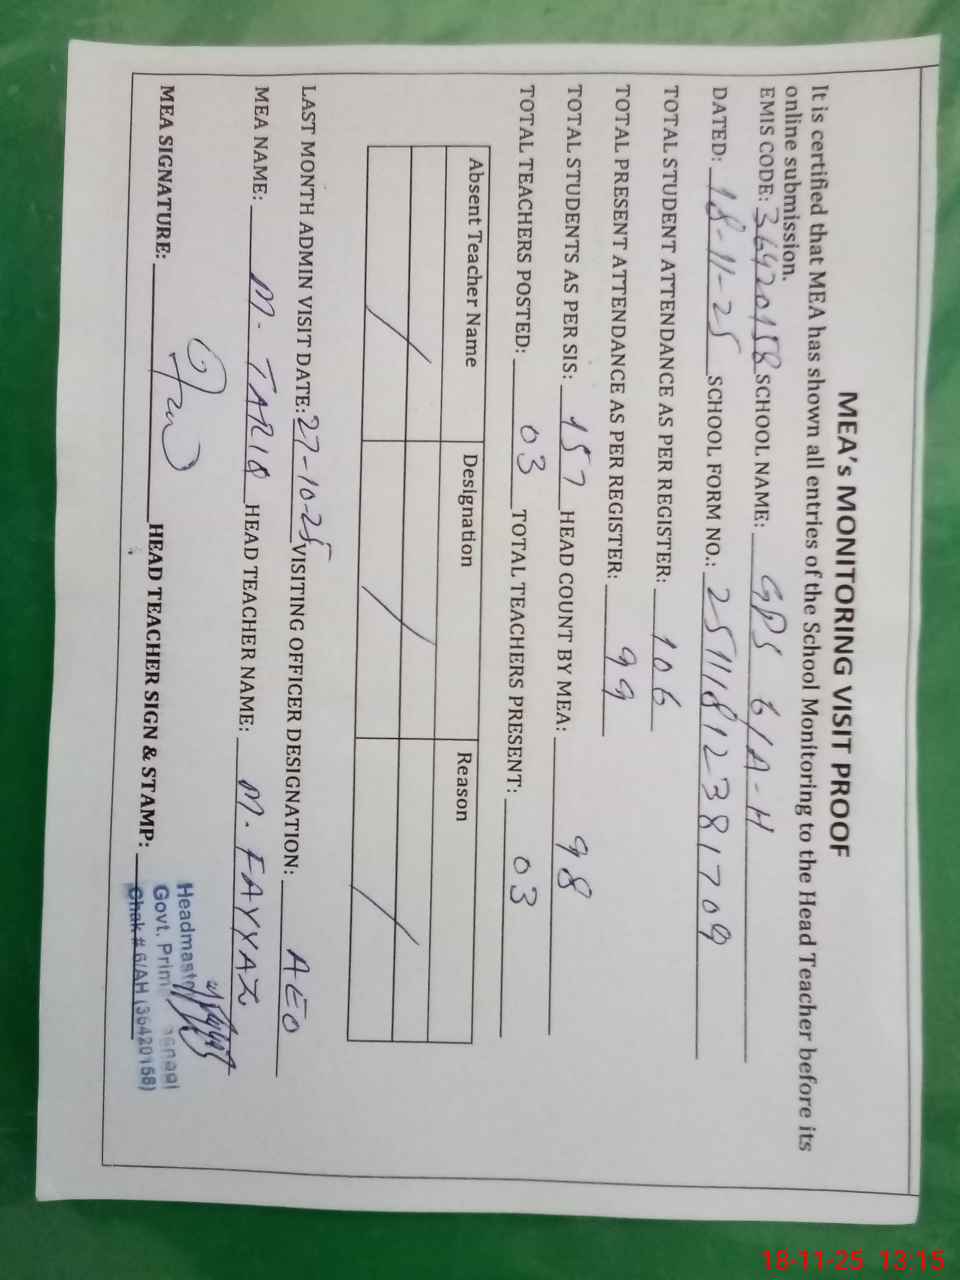 MEA's MONITORING VISIT PROOF
It is certified that MEA has shown all entries of the School Monitoring to the Head Teacher before its
online submission.
EMIS CODE: 36420158 SCHOOL NAME: GPS 6/A-H
DATED: 18-11-25 SCHOOL FORM NO.: 25111812381709
TOTAL STUDENT ATTENDANCE AS PER REGISTER: 106
TOTAL PRESENT ATTENDANCE AS PER REGISTER: 99
TOTAL STUDENTS AS PER SIS: 157 HEAD COUNT BY MEA: 98
TOTAL TEACHERS POSTED: 03 TOTAL TEACHERS PRESENT: 03
Absent Teacher Name Designation Reason
/ / /
LAST MONTH ADMIN VISIT DATE: 27-10-25 VISITING OFFICER DESIGNATION: AEO
MEA NAME: M. TARIQ HEAD TEACHER NAME: M. FAYYAZ
MEA SIGNATURE: HEAD TEACHER SIGN & STAMP:
Headmaster
Govt. Prim
Chak # 6/AH (36420158)
18-11-25 13:15